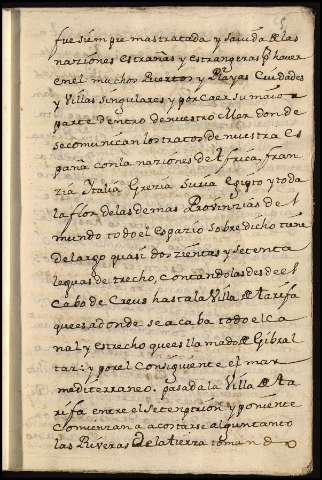 fue siempre mas tratada y sauida de las
naziones estrañas y estrangeras por hauer
en el muchos Puertos y Playas Ciudades
y Villas singulares y por caer su maior
parte dentro de nuestro Mar donde
se comunican los tratos de nuestra es
paña con la naziones de Africa, fran
zia Italia Grezia Suria Egipto y toda
la flor de las demas Provinzias del
mundo todo el espazio sobredicho tiene
de largo quasi dozientas y setenta
leguas de trecho, contandolas desde el
cabo de Creus hasta la Villa de tarifa
que es adonde se acaba todo el ca
nal y estrecho que es llamado de Gibral
tar: y por el consiguiente el mar
mediterraneo. pasada la Villa de ta
rifa entre el setentrion y poniente
comienzan a acostarse algun tanto
las Riveras de la tierra tomando